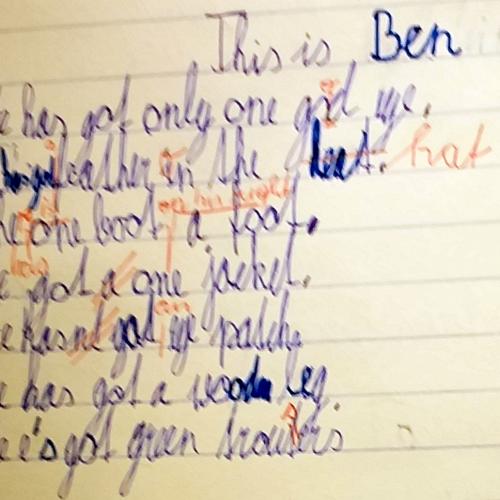 This is Ben
e has got only one god eye.
feather in the hat. hat
he one boot a foot.
e got a one jacket.
e hasn't got eye patch.
e has got a wooden leg.
e's got green trousers